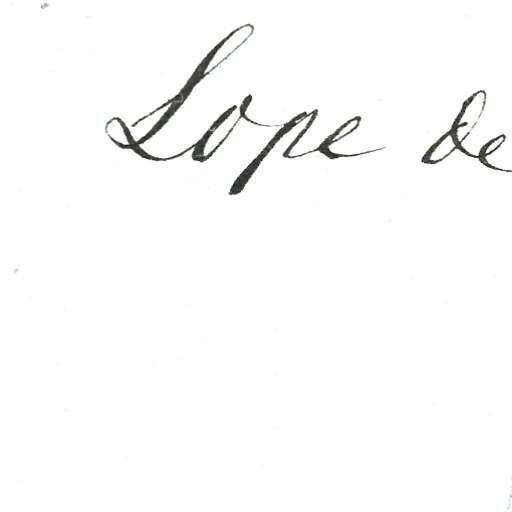 Lope de